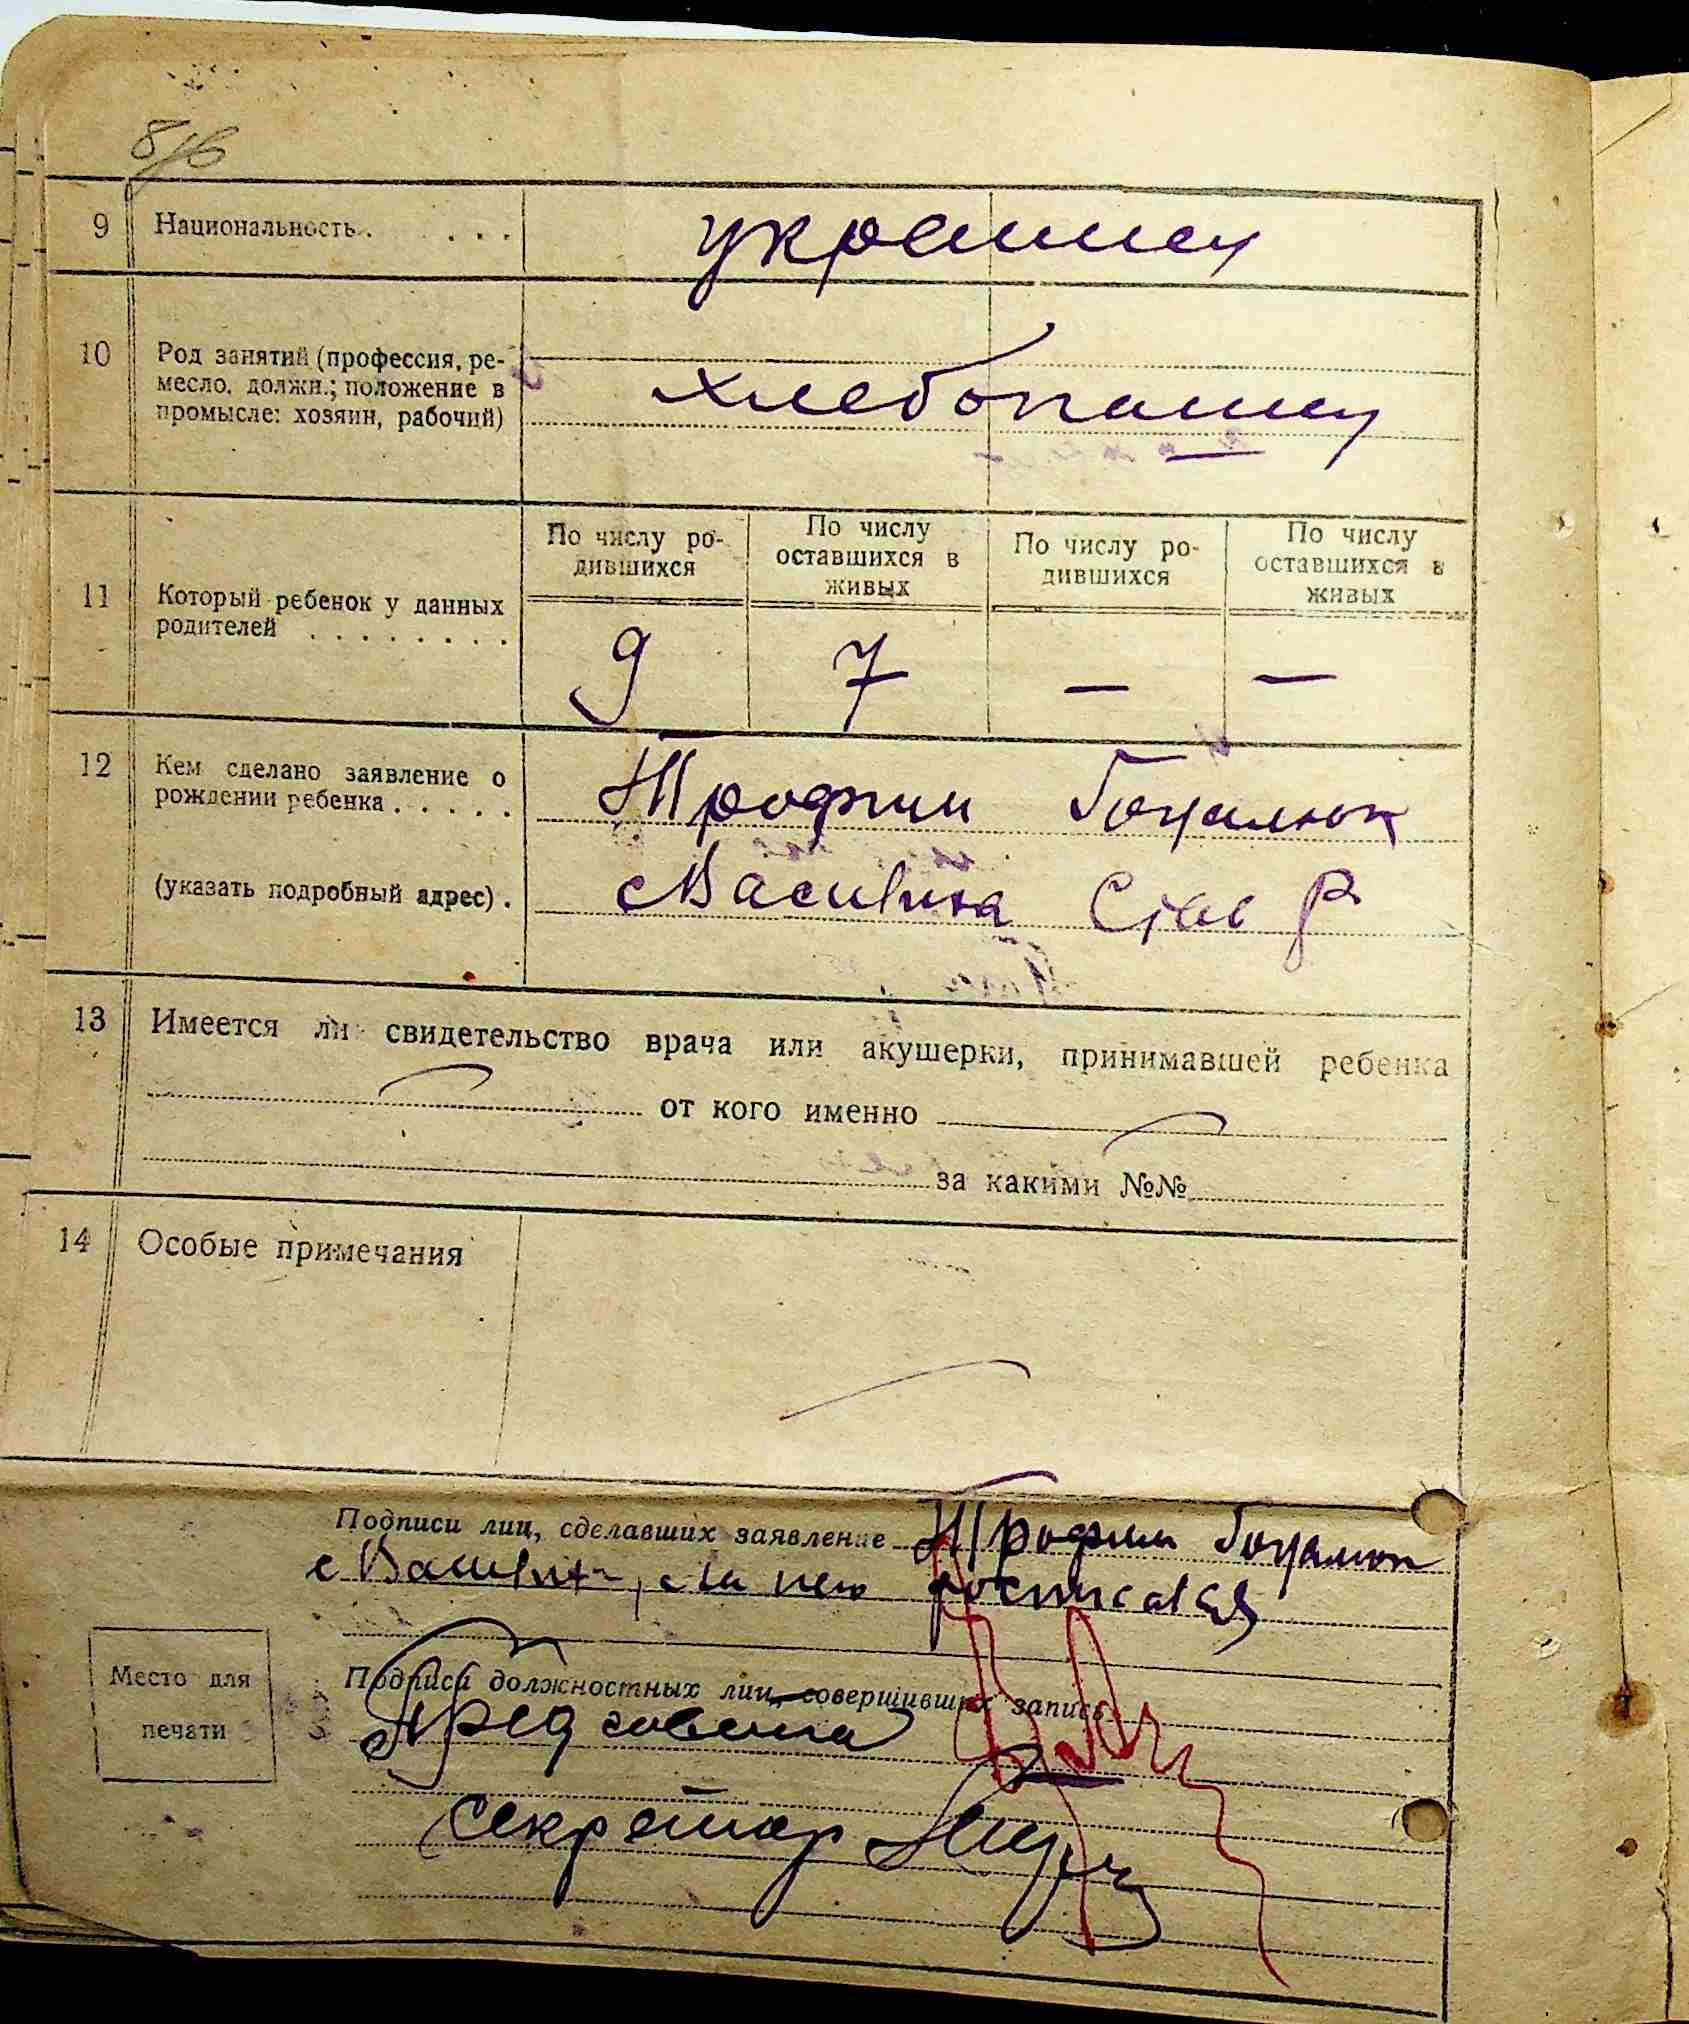 8/6
9 Национальность . . . . украинец
10 Род занятий (профессия, ре-
месло, должн.; положение в
промысле: хозяин, рабочий)
хлебопашец
11 Который ребенок у данных
родителей . . . . . . . .
По числу ро-
дившихся
По числу
оставшихся в
живых
По числу ро-
дившихся
По числу
оставшихся в
живых
9 7 — —
12 Кем сделано заявление о
рождении ребенка . . . . .
Трофим Гоцалюк
(указать подробный адрес) .
с Васивка Став Р
13 Имеется ли свидетельство врача или акушерки, принимавшей ребенка
от кого именно
за какими №№
14 Особые примечания
Подписи лиц, сделавших заявление Трофим Гоцалюк
росписался
Место для
печати
Подписи должностных лиц, совершивших запись
Предсовета
секретар